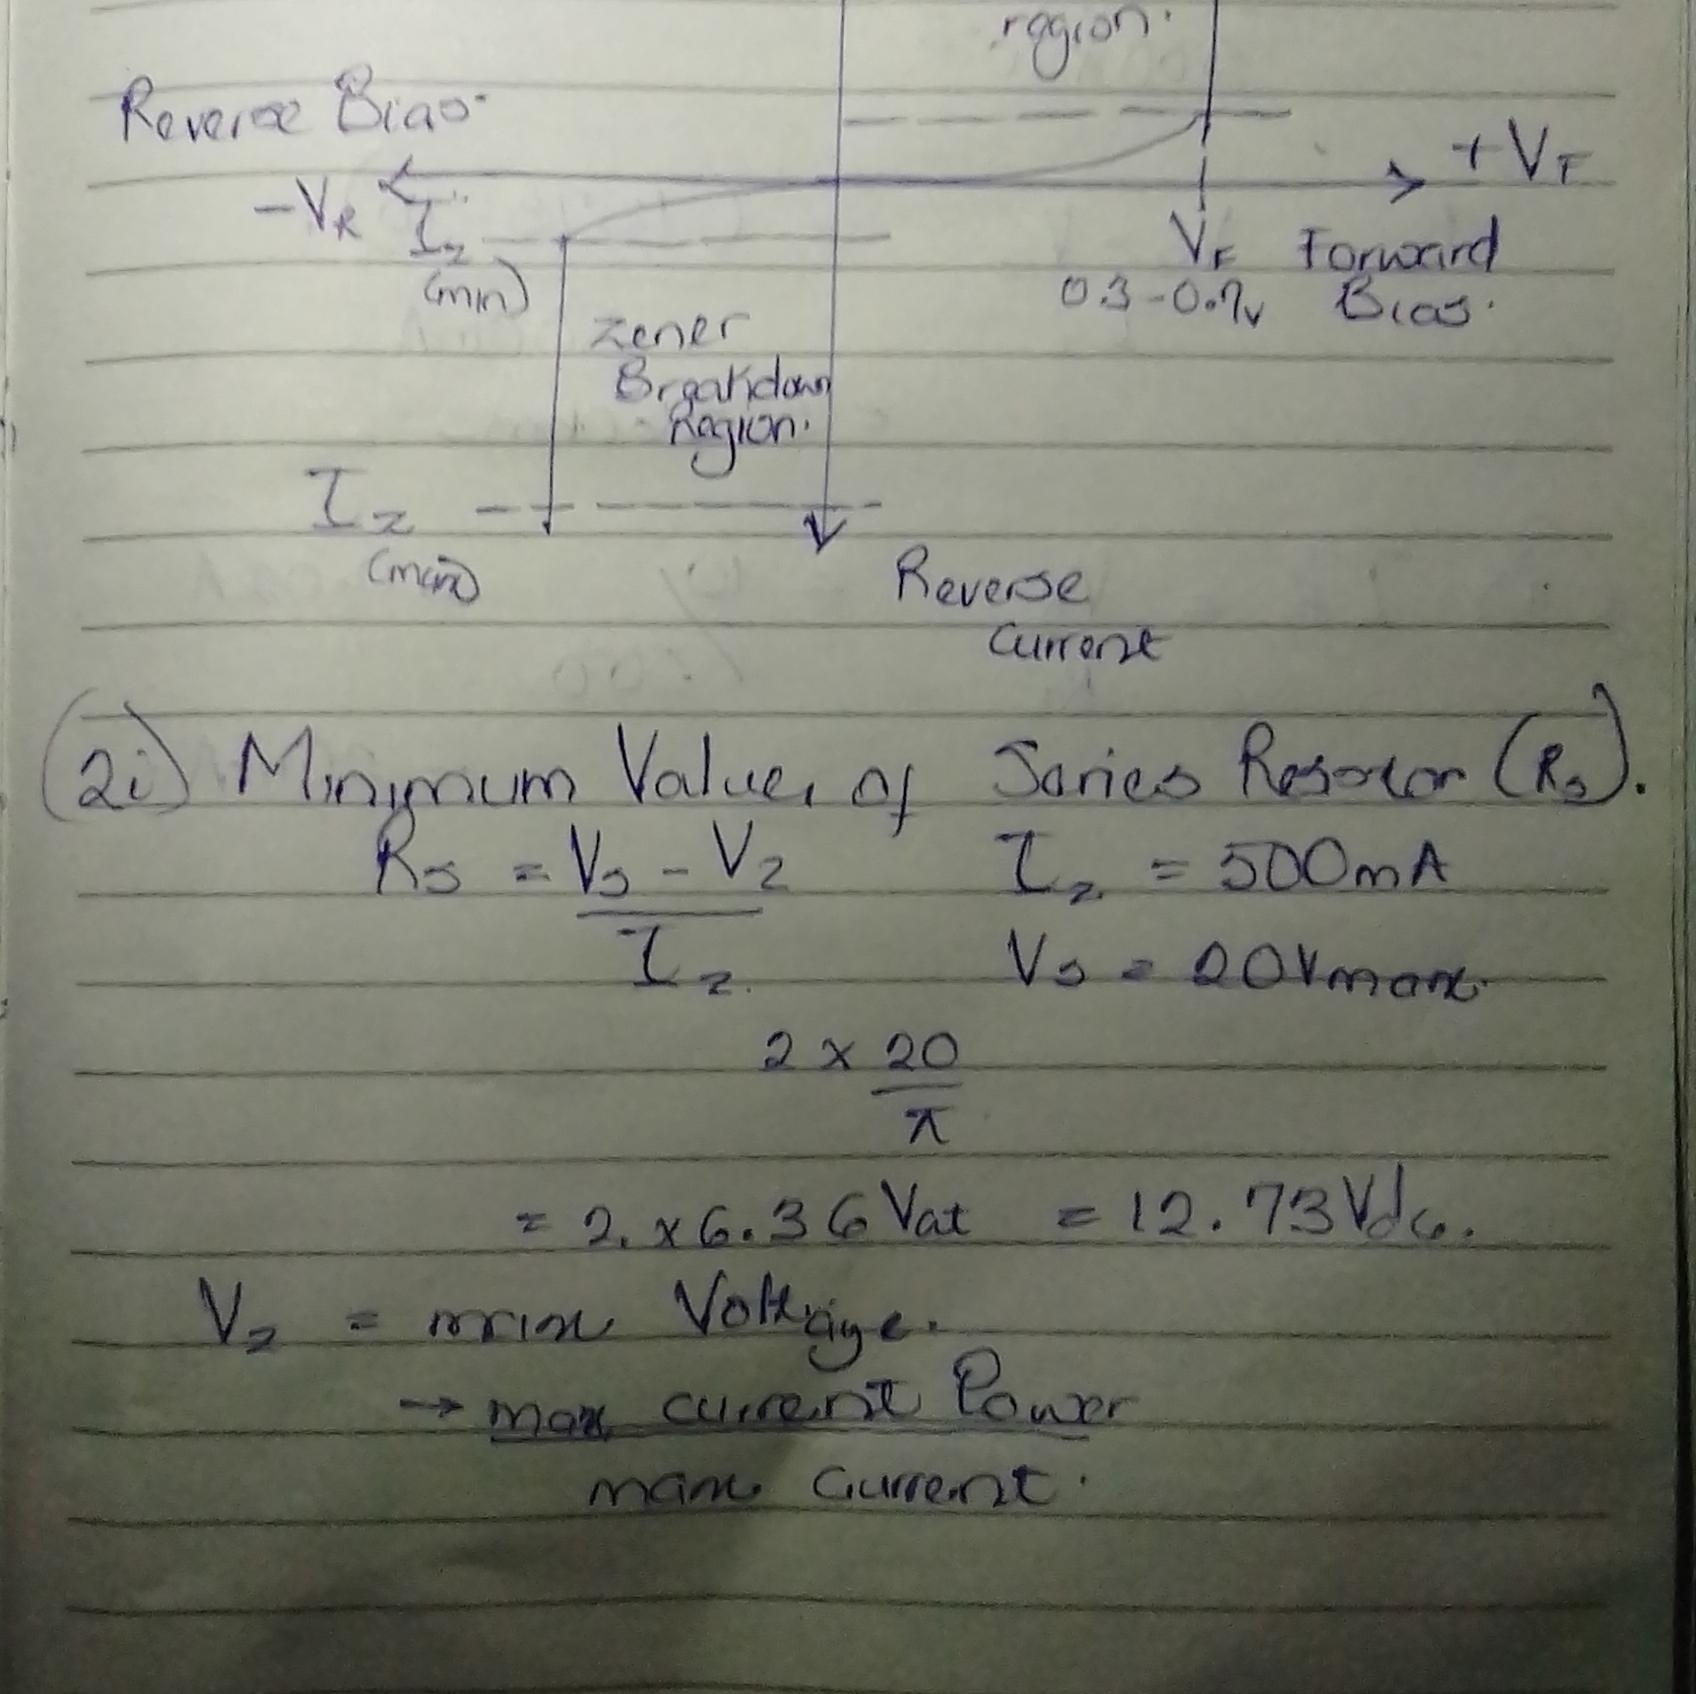 region.
Reverse Bias.
+VF
-VR
Iz
(min)
VF Forward
0.3-0.7v Bias.
zener
Breakdown
Region.
Iz
(max)
Reverse
Current
(2i) Minimum Value, of Series Resistor (Rs).
Rs = Vs - Vz Iz = 500mA
Iz. Vs = 20Vmax.
2 x 20
π
= 2. x 6.36 Vat = 12.73Vdc.
Vz = max Voltage.
→ max current Power
max current.